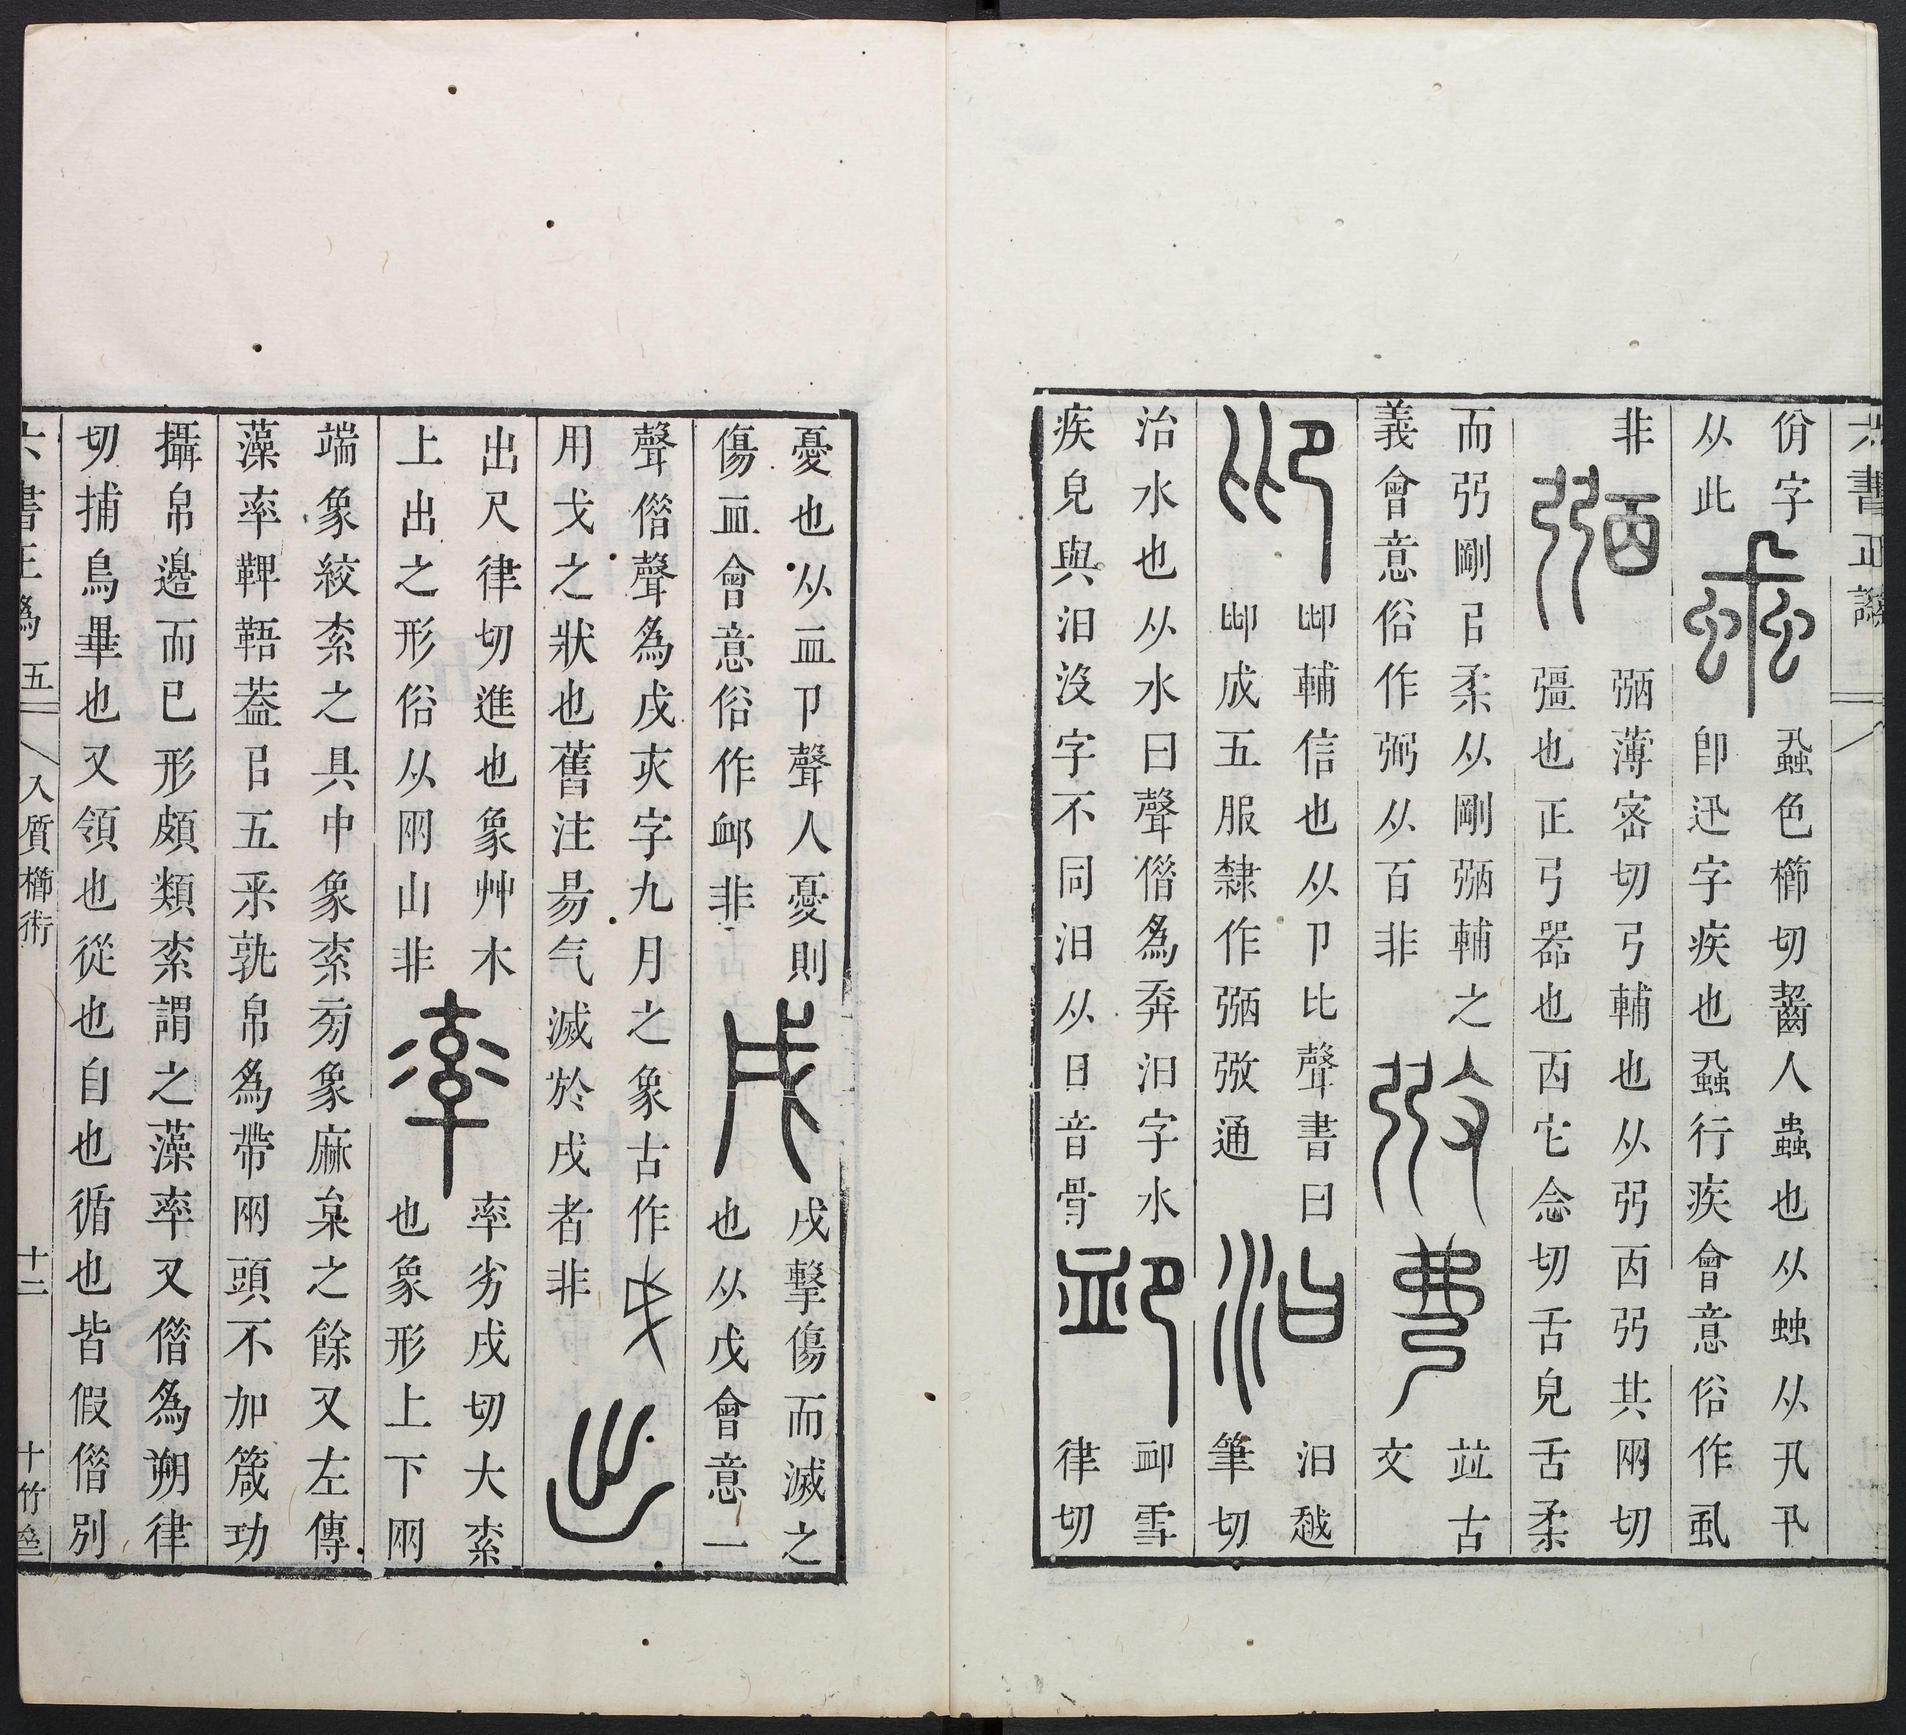 六書正譌
佾字
从此
蝨色櫛切齧人蟲也从䖵从卂卂
卽迅字疾也蝨行疾會意俗作虱
非
弼薄密切弓輔也从弜㐁弜其兩切
彊也正弓器也㐁它念切舌皃舌柔
而弜剛㠯柔从剛弼輔之
義會意俗作弻从百非
竝古
文
𠨒輔信也从卩比聲書曰
𠨒成五服隸作弼㢸通
汨越
筆切
治水也从水曰聲借爲奔汨字水
疾皃與汨沒字不同汨从日音骨
卹雪
律切
憂也从血卩聲人憂則
傷血會意俗作䘏非
戌擊傷而滅之
也从戊會意一
聲借聲爲戊亥字九月之象古作
用戈之狀也舊注昜气滅於戌者非
出尺律切進也象艸木
上出之形俗从兩山非
率劣戌切大索
也象形上下兩
端象絞索之具中象索㫄象麻枲之餘又左傳
藻率鞞鞛蓋㠯五采執帛爲帶兩頭不加箴功
攝帛邊而已形頗類索謂之藻率又借爲朔律
切捕鳥畢也又領也從也自也循也皆假借別
六書正譌 五 入質櫛術 十二 十竹堂